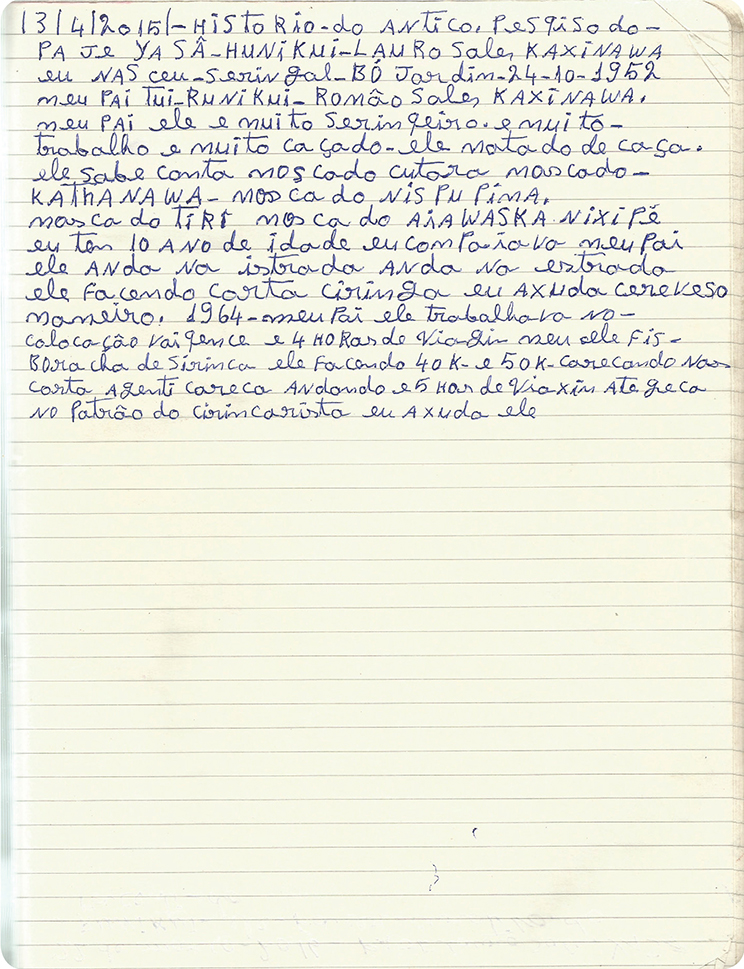 13/4/2015/-HiStoRio-do ANtico. PesgiSo do-
PA Je YASÂ-HUNiKUi-LAURO Sales KAXiNAWA
eu NAS ceu-Seringal-BÓ Jardin-24-10-1952
meu PAi TUi-RUNiKUi-Romão Sales KAXINAWA.
meu PAi ele e muito Seringeiro. e muito-
trabalho e muito caçado-ele matado de caça.
ele sabe conta moscado cutora moscado-
KAThANAWA-moscado NiSPU PiMA.
moscado TiRi moscado AiAWASKA NiXiPÉ
eu ten 10 ANO de idade eu comPaiava meu Pai
ele ANda Na istrada ANda No estrada
ele Facendo Corta Ciringa eu AXUda cereveso
maneiro. 1964-meu Pai ele trabalhava No-
colocação Vaigence e 4 HoRas de Viagin meu ele Fis-
BoRacha de Sirinca ele Facendo 40K-e 50K-Carecando Nas
Corta Agenti Careca Andando e 5 Hos de Viaxin Ate geca
No Patrão do Cirincarista eu AXUda ele